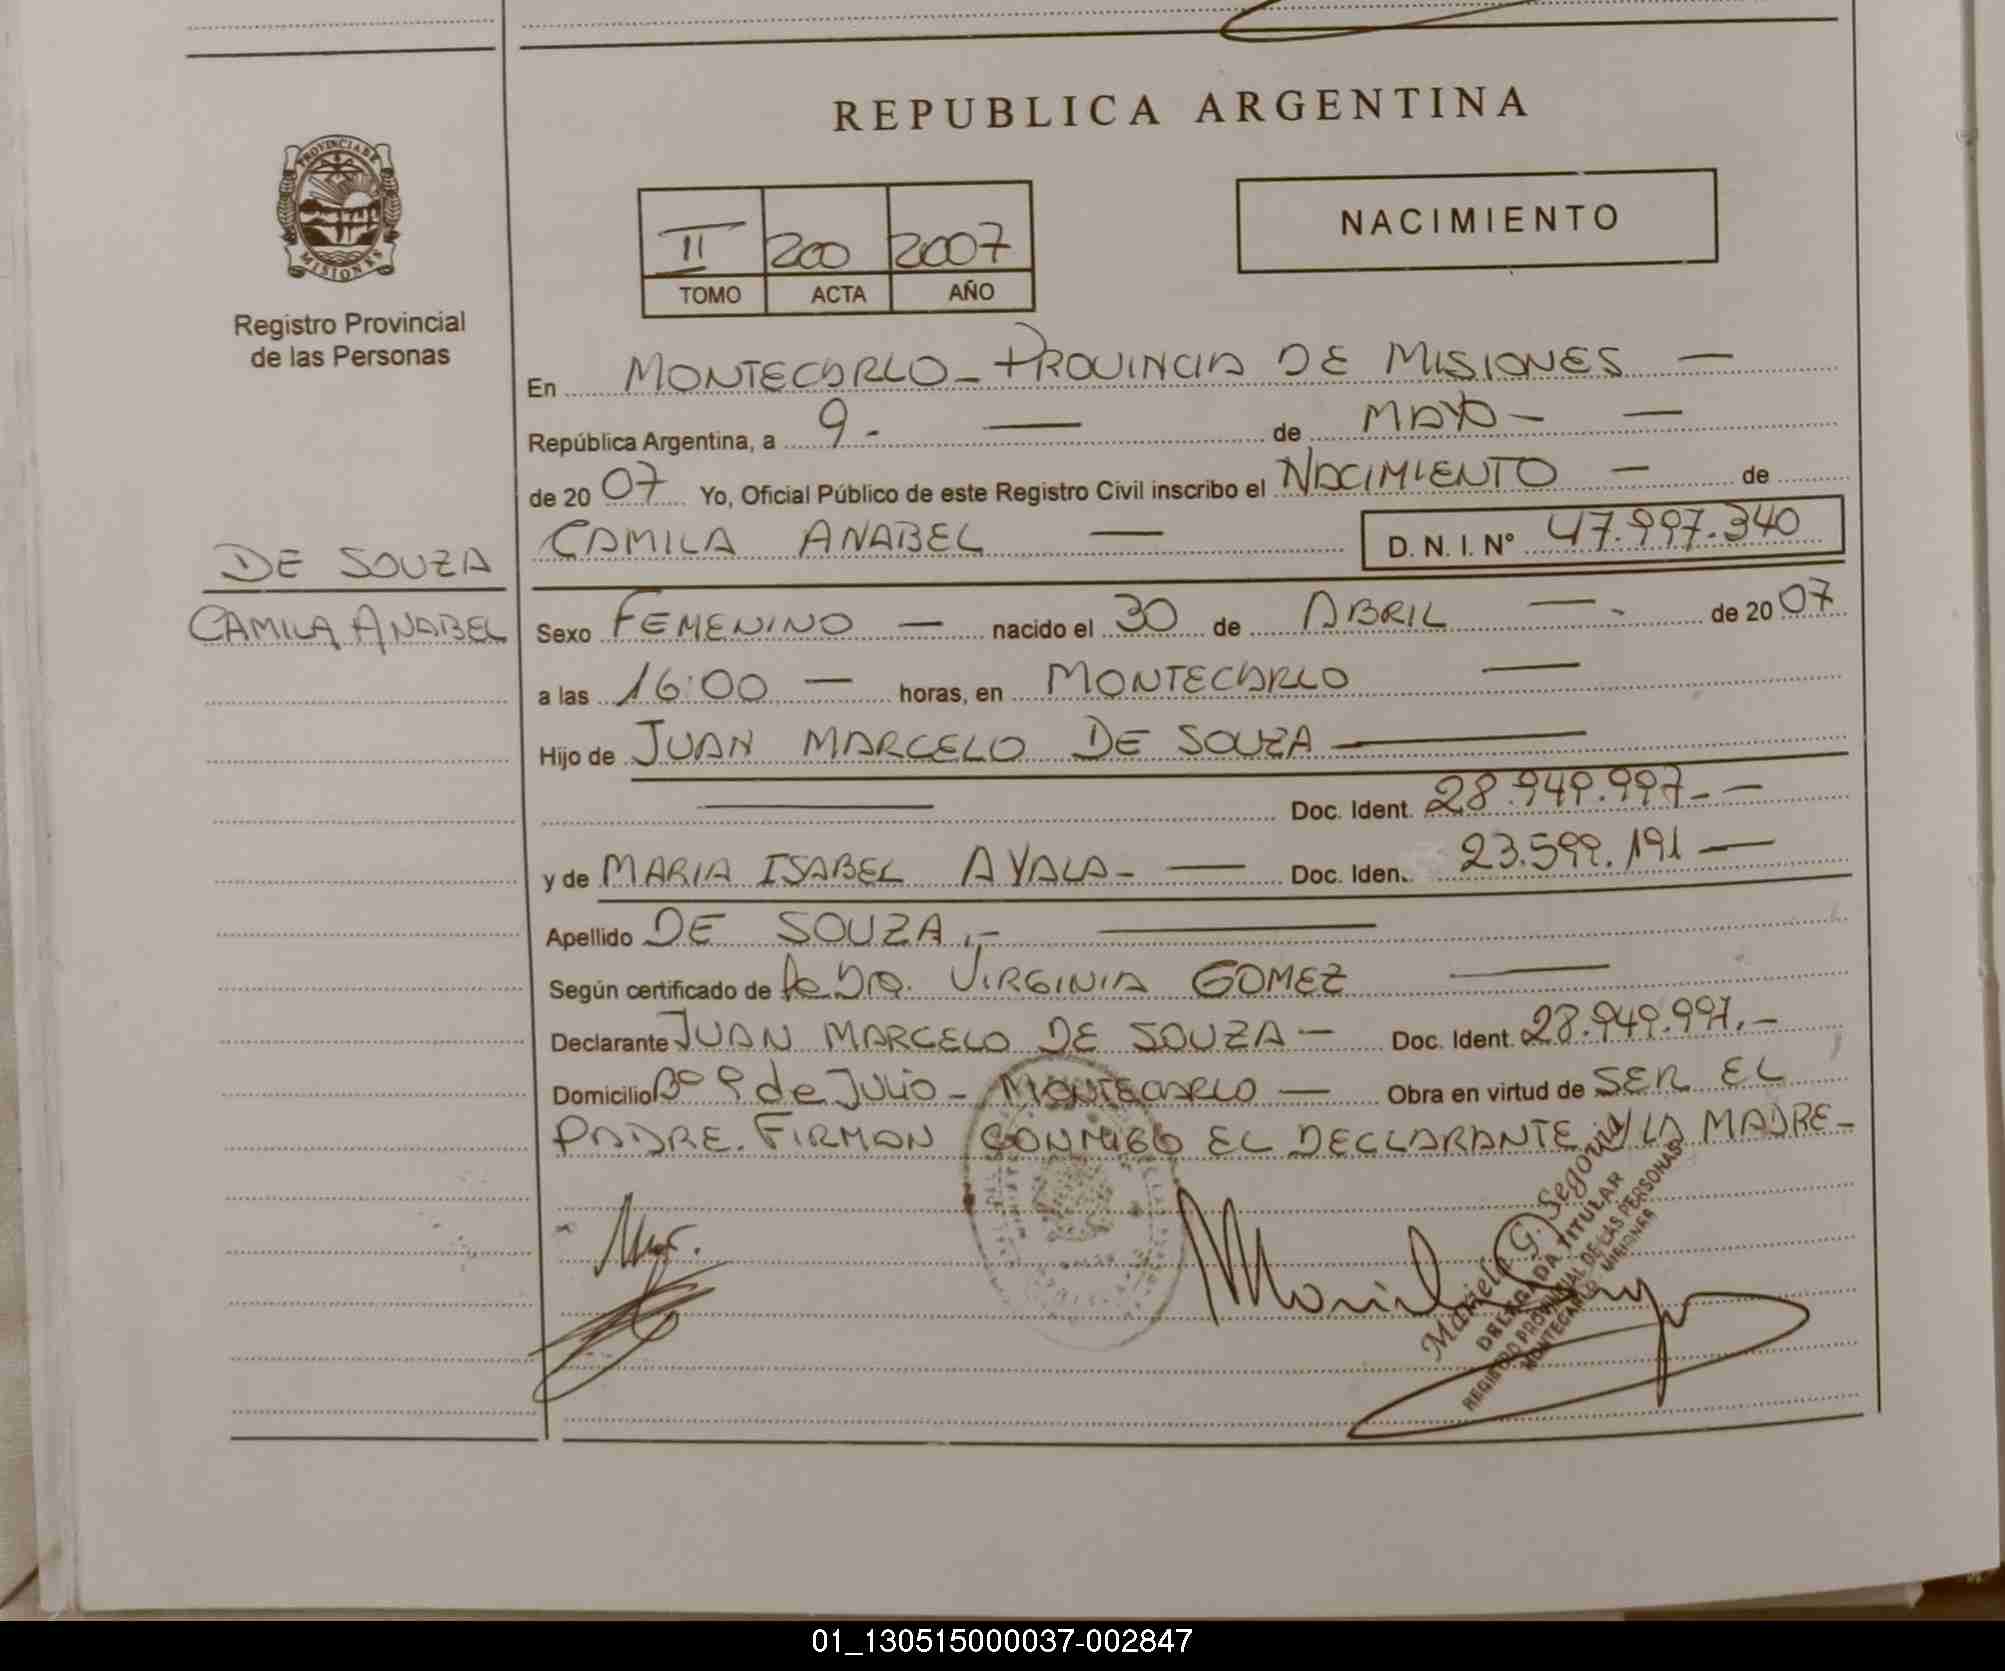 REPUBLICA ARGENTINA
PROVINCIA DE
MISIONES
Registro Provincial
de las Personas
NACIMIENTO
II 200 2007
TOMO ACTA AÑO
En MONTECARLO - PROVINCIA DE MISIONES —
República Argentina, a 9 - — de MAYO - —
de 20 07 Yo, Oficial Público de este Registro Civil inscribo el NACIMIENTO — de
CAMILA ANABEL — D. N. I. N° 47.997.340
DE SOUZA
CAMILA ANABEL
Sexo FEMENINO — nacido el 30 de ABRIL — - de 20 07
a las 16:00 — horas, en MONTECARLO —
Hijo de JUAN MARCELO DE SOUZA —
— Doc. Ident. 28.949.997 - —
y de MARIA ISABEL AYALA - — Doc. Iden. 23.599.191 —
Apellido DE SOUZA .- —
Según certificado de la Dra. VIRGINIA GOMEZ —
Declarante JUAN MARCELO DE SOUZA — Doc. Ident. 28.949.997. -
Domicilio B° 9 de JULIO - MONTECARLO — Obra en virtud de SER EL
PADRE. FIRMAN CONMIGO EL DECLARANTE Y LA MADRE -
Mariela G. Segovia
DELEGADA TITULAR
REGISTRO PROVINCIAL DE LAS PERSONAS
MONTECARLO - MISIONES
01_130515000037-002847